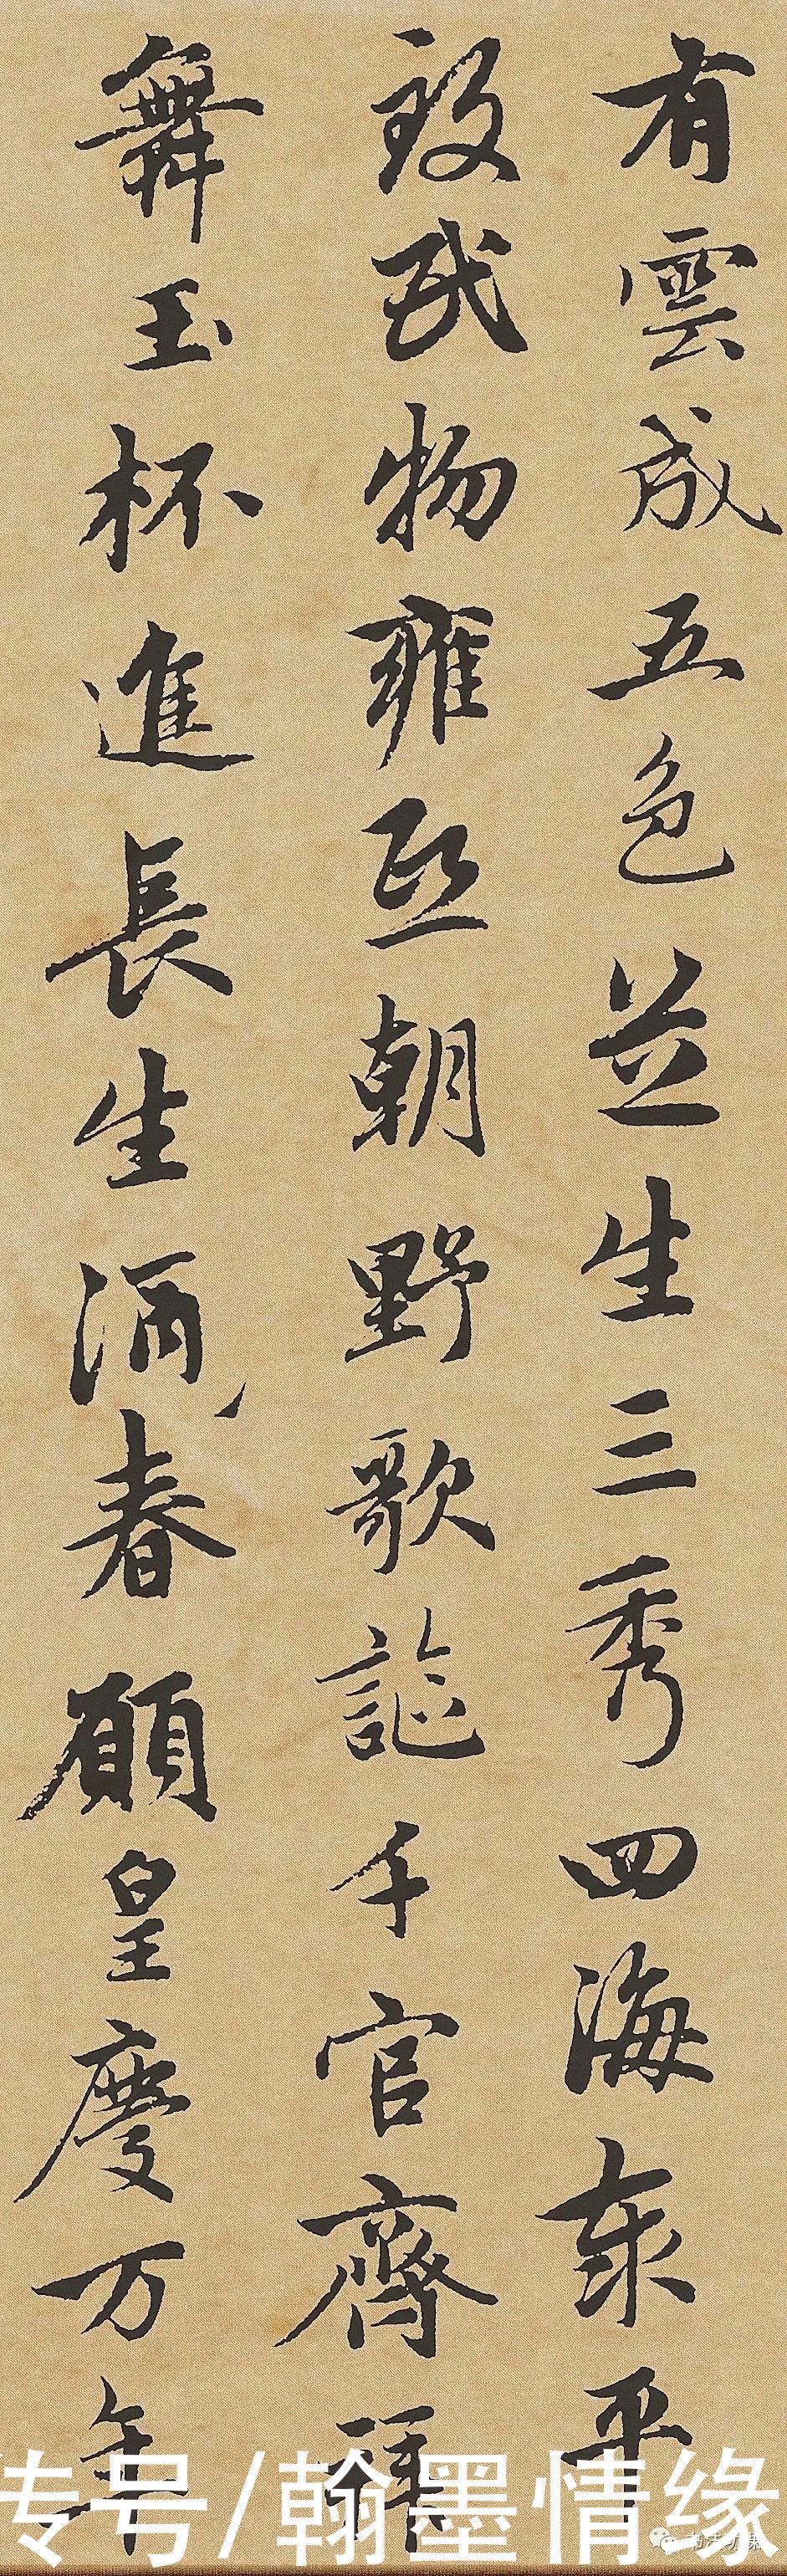 有雲成五色芝生三秀四海承平
致民物雍熙朝野歌謳千官齊拜
舞玉杯進長生酒春願皇慶万年
号/翰墨情缘